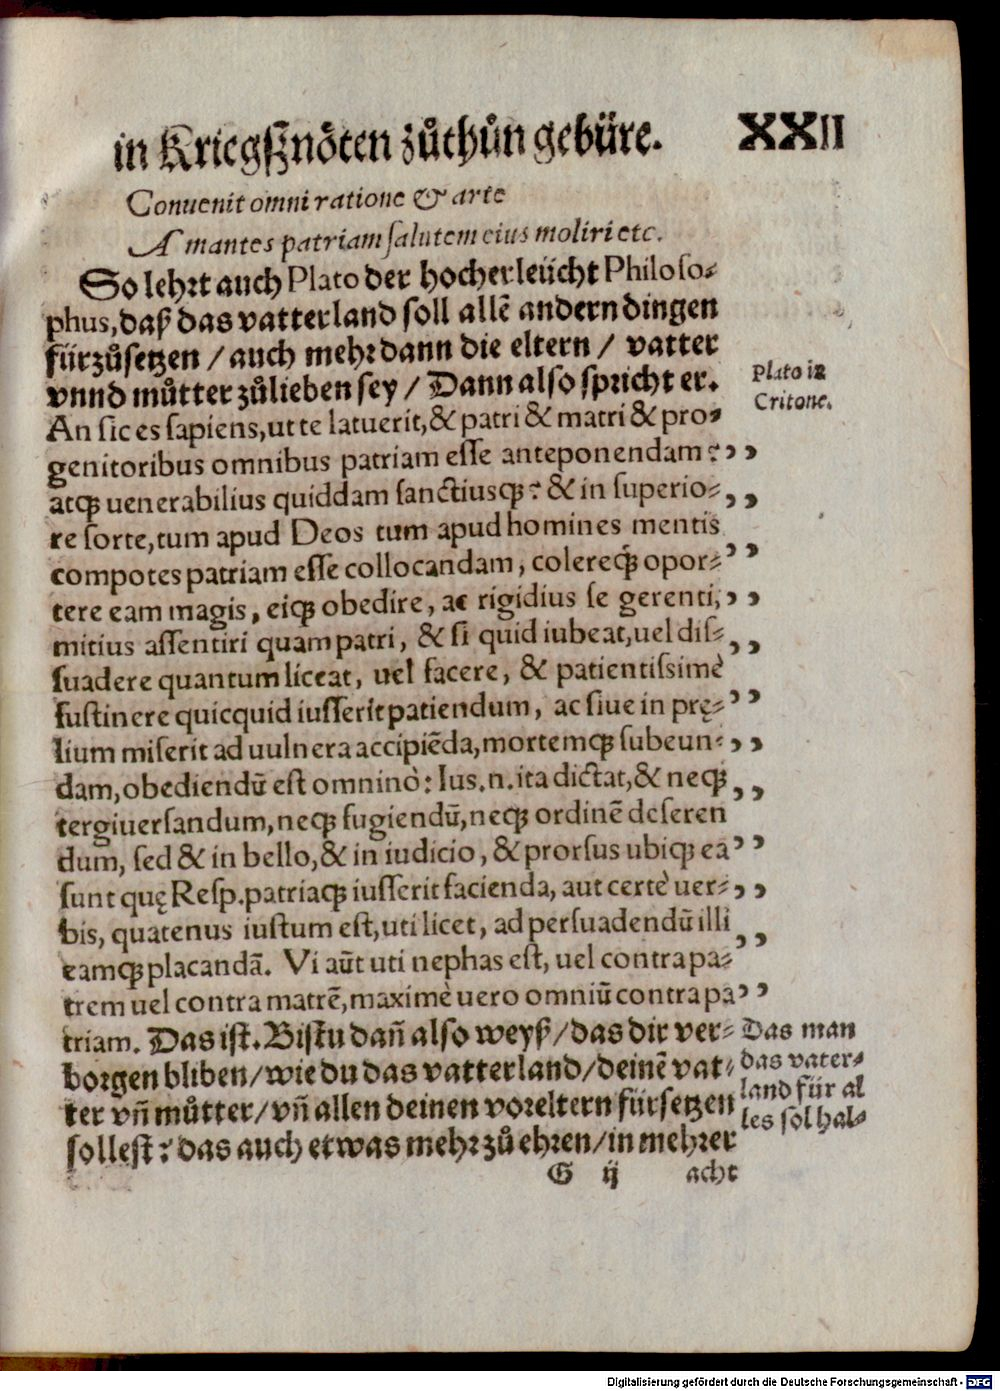 in Kriegsznöten zůthůn gebüre. XXII
Conuenit omni ratione & arte
Amantes patriam salutem eius moliri etc.
So lehrt auch Plato der hocherleücht Philoso⸗
phus, daß das vatterland soll allē andern dingen
fürzůsetzen / auch mehr dann die eltern / vatter
vnnd můtter zůlieben sey / Dann also spricht er.
Plato in
Critone.
An sic es sapiens, ut te latuerit, & patri & matri & pro⸗
genitoribus omnibus patriam esse anteponendam? ,,
atqꝫ uenerabilius quiddam sanctiusqꝫ? & in superio⸗ ,,
re sorte, tum apud Deos tum apud homines mentis
compotes patriam esse collocandam, colereqꝫ́ opor⸗ ,,
tere eam magis, eiqꝫ obedire, ac rigidius se gerenti, ,,
mitius assentiri quam patri, & si quid iubeat, uel dis⸗ ,,
suadere quantum liceat, uel facere, & patientissimè
sustinere quicquid iusserit patiendum, ac siue in prę⸗ ,,
lium miserit ad uulnera accipiēda, mortemqꝫ subeun⸗ ,,
dam, obediendū est omninò: Ius.n.ita dictat, & neqꝫ ,,
tergiuersandum, neqꝫ fugiendū, neqꝫ ordinē deseren
dum, sed & in bello, & in iudicio, & prorsus ubiqꝫ ea ,,
sunt quę Resp. patriaqꝫ iusserit facienda, aut certè uer⸗ ,,
bis, quatenus iustum est, uti licet, ad persuadendū illi
eamqꝫ placandā. Vi aūt uti nephas est, uel contra pa⸗ ,,
trem uel contra matrē, maximè uero omniū contra pa ,,
triam. Das ist. Bistu dañ also weyß / das dir ver⸗
borgen bliben / wie du das vatterland / deinē vat⸗
ter vñ můtter / vñ allen deinen voreltern fürsetzen
sollest? das auch etwas mehr zů ehren / in mehrer
Das man
das vater⸗
land für al
les sol hal⸗
G ij acht
Digitalisierung gefördert durch die Deutsche Forschungsgemeinschaft - DFG